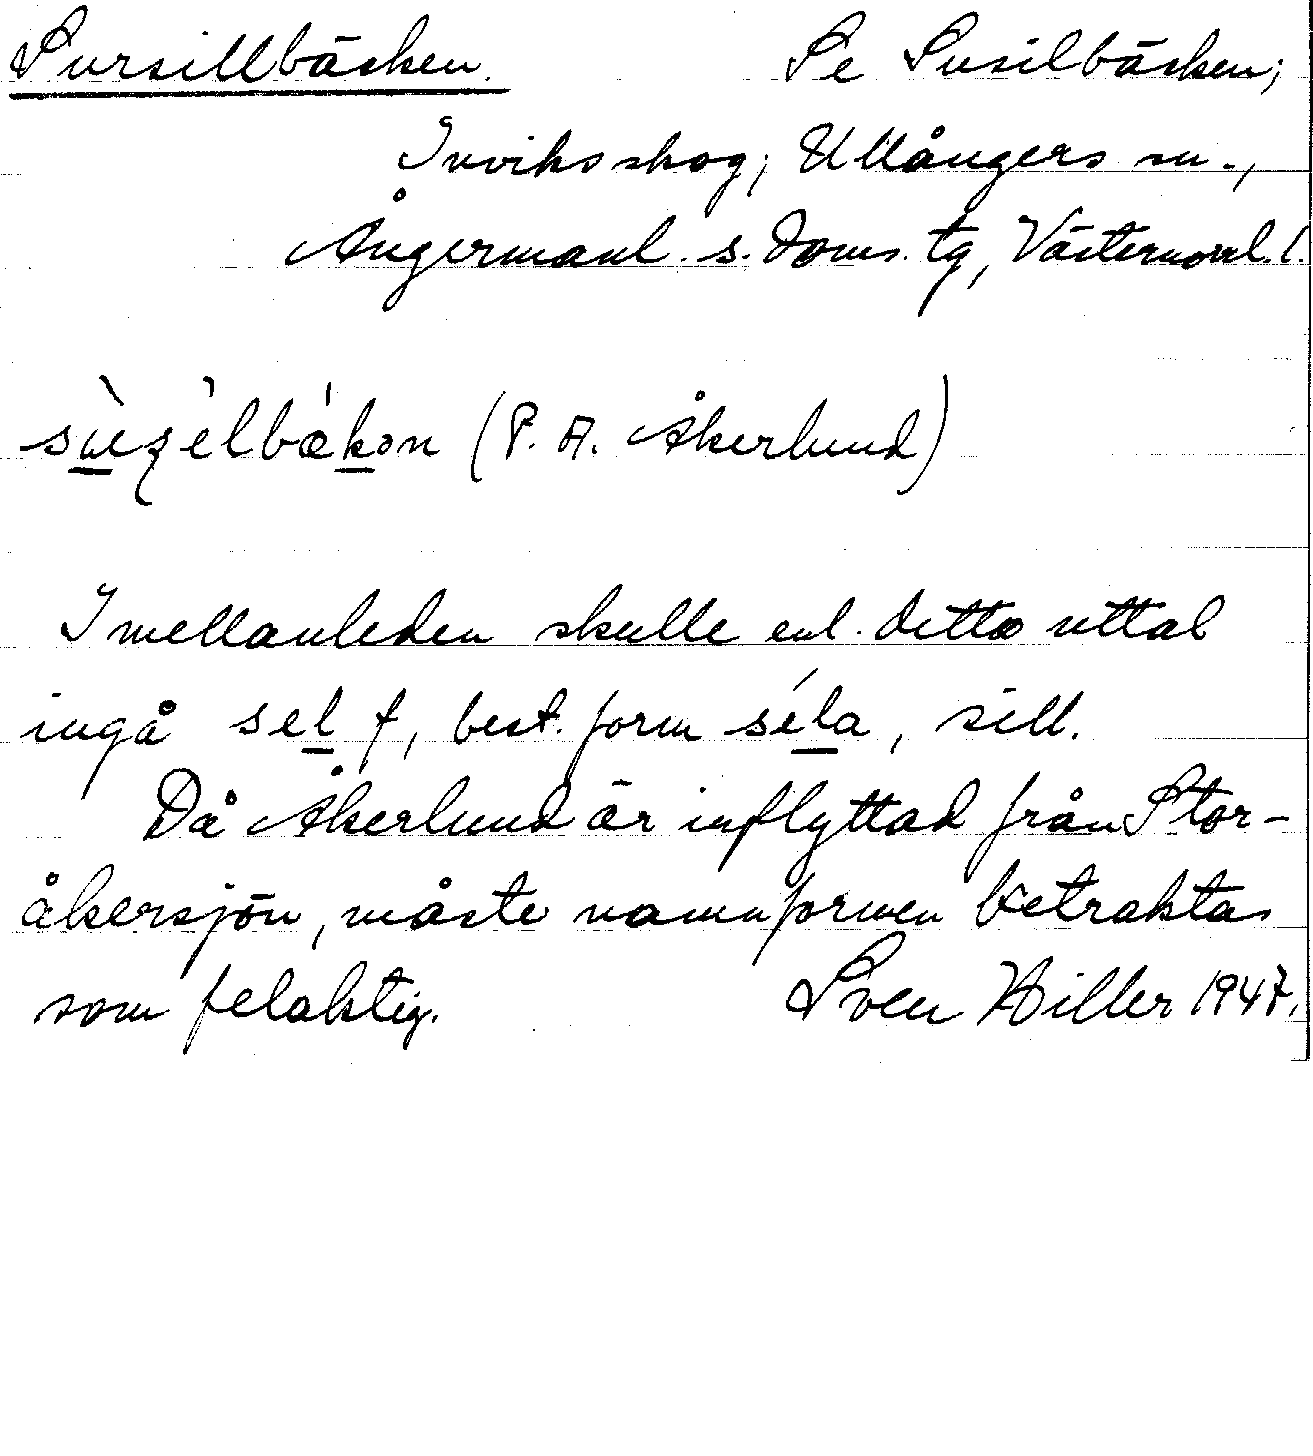 Sursillbäcken. Se Susilbäcken;
Inviksskog; Ullångers sn.,
Ångermanl. s. doms. tg, Västernorrl. l.
sùzèlbékən (P. A. Åkerlund)
I mellanleden skulle enl. detta uttal
ingå sel f, best. form séla, sill.
Då Åkerlund är inflyttad från Stor-
åkersjön, måste namnformen betraktas
som felaktig. Sven Hiller 1947.